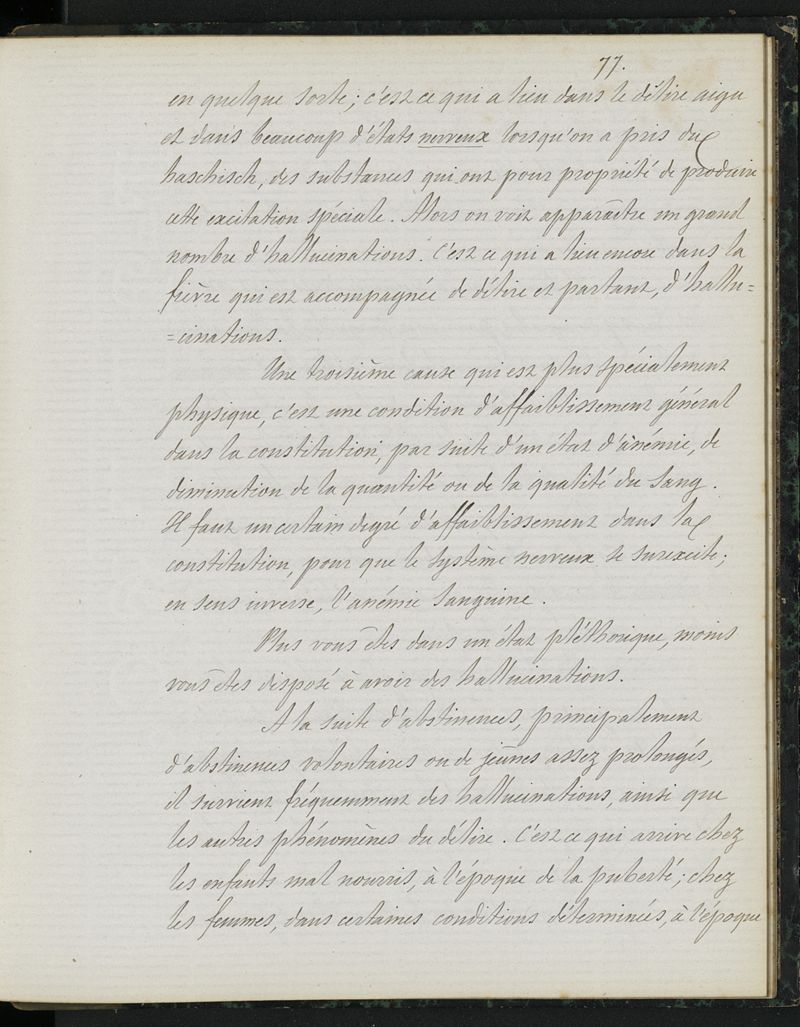 77.
en quelque sorte; c'est ce qui a lieu dans le délire aigu
et dans beaucoup d'états nerveux lorsqu'on a pris du
haschisch, des substances qui ont pour propriété de produire
cette excitation spéciale. Alors on voit apparaître un grand
nombre d'hallucinations. C'est ce qui a lieu encore dans la
fièvre qui est accompagnée de délire et partant, d'hallu=
=cinations.
Une troisième cause qui est plus spécialement
physique, c'est une condition d'affaiblissement général
dans la constitution, par suite d'un état d'anémie, de
diminution de la quantité ou de la qualité du sang.
Il faut un certain degré d'affaiblissement dans la
constitution, pour que le système nerveux se surexcite;
en sens inverse, l'anémie sanguine.
Plus vous êtes dans un état pléthorique, moins
vous êtes disposé à avoir des hallucinations.
A la suite d'abstinences, principalement
d'abstinences volontaires ou de jeûnes assez prolongés,
il survient fréquemment des hallucinations, ainsi que
les autres phénomènes du délire. C'est ce qui arrive chez
les enfants mal nourris, à l'époque de la puberté; chez
les femmes, dans certaines conditions déterminées, à l'époque